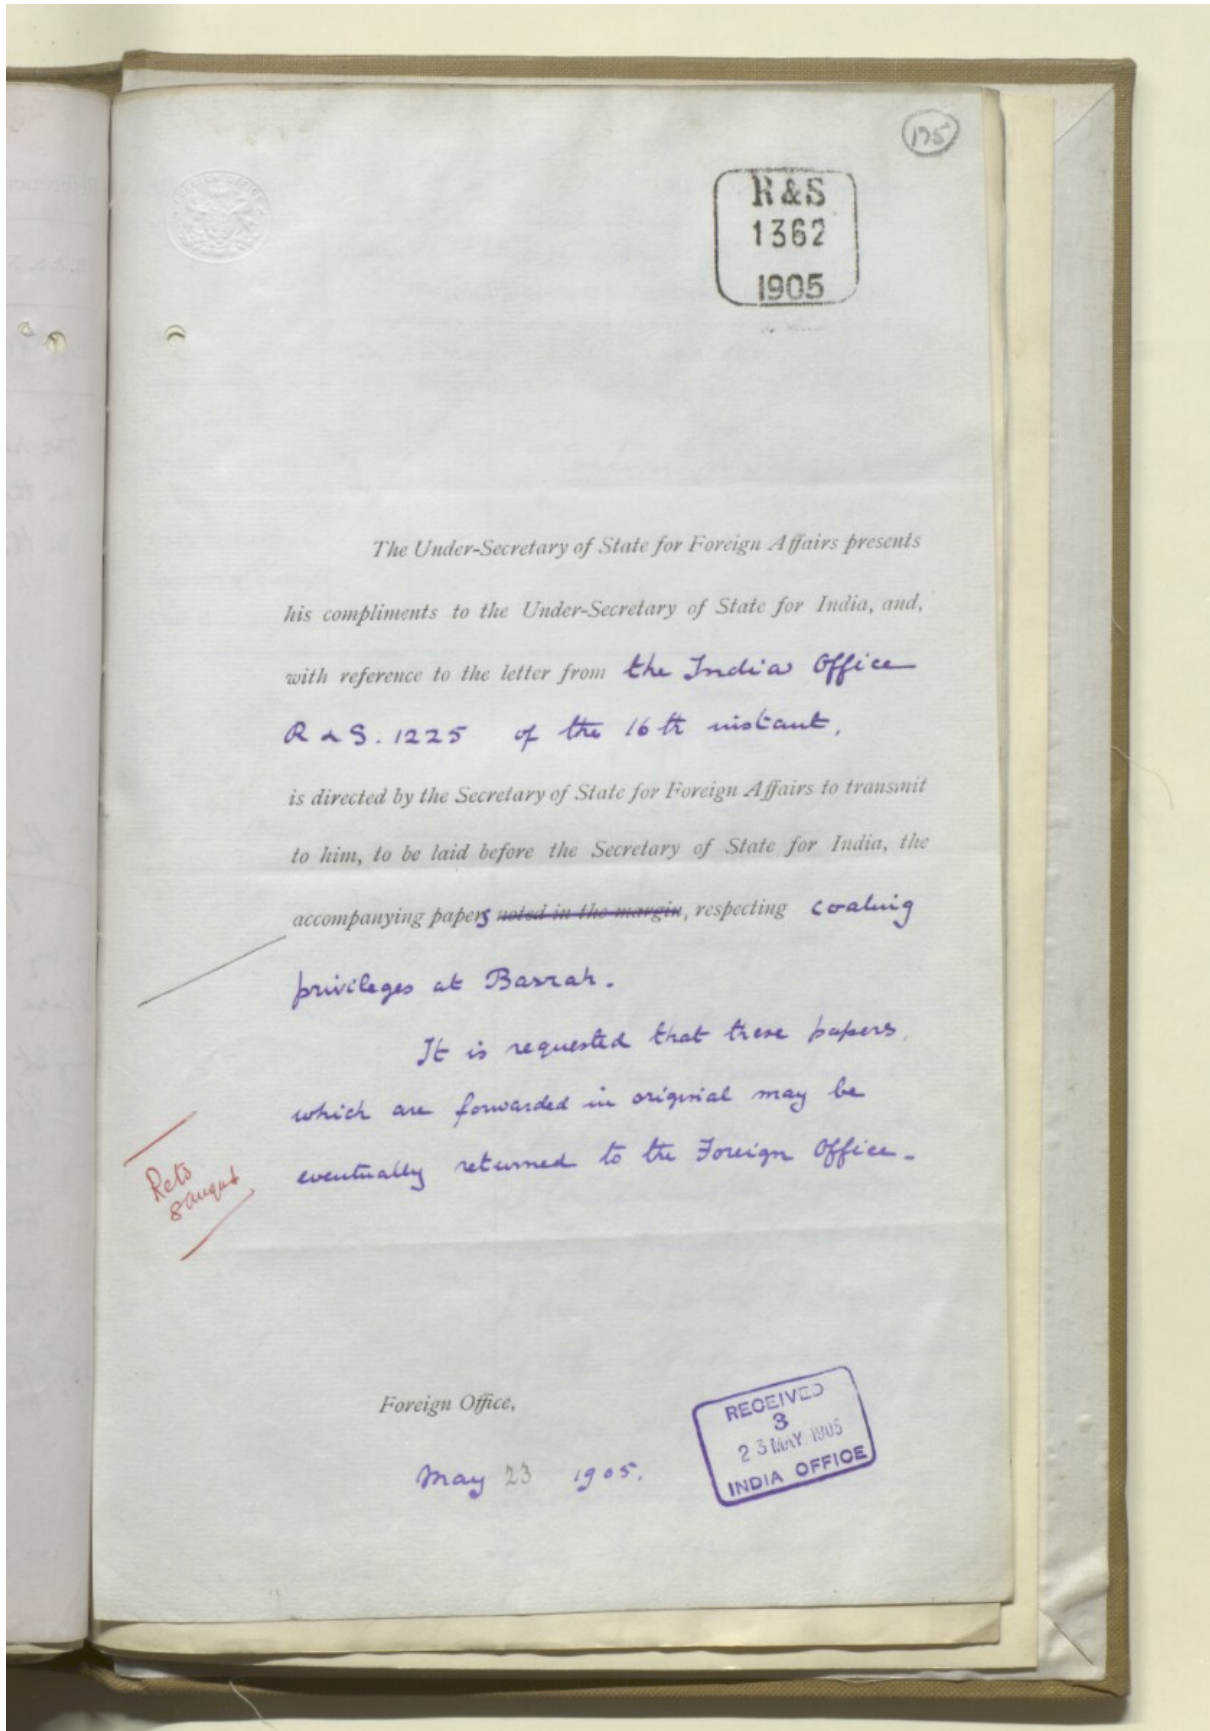 175
R & S
1362
1905
The Under-Secretary of State for Foreign Affairs presents
his compliments to the Under-Secretary of State for India, and,
with reference to the letter from the India Office
R & S. 1225 of the 16th instant,
is directed by the Secretary of State for Foreign Affairs to transmit
to him, to be laid before the Secretary of State for India, the
accompanying papers noted in the margin, respecting coaling
privileges at Basrah.
It is requested that these papers,
which are forwarded in original may be
eventually returned to the Foreign Office.
8 August
Foreign Office,
May 23 1905.
RECEIVED
3
23 MAY. 1905
INDIA OFFICE